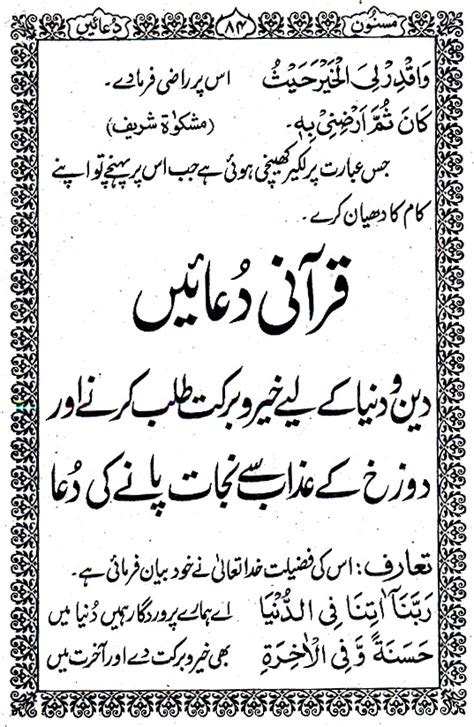 مسنون ۸۴ دُعائیں
وَاقْدِرْ لِیَ الْخَیْرَ حَیْثُ اس پر راضی فرمائے۔
کَانَ ثُمَّ اَرْضِنِیْ بِہٖ۔ (مشکوٰۃ شریف)
جس عبارت پر لکیر کھینچی ہوئی ہے جب اس پر پہنچے تو اپنے
کام کا دھیان کرے۔
قرآنی دُعائیں
دین و دنیا کے لیے خیر و برکت طلب کرنے اور
دوزخ کے عذاب سے نجات پانے کی دُعا
تعارف: اس کی فضیلت خدا تعالیٰ نے خود بیان فرمائی ہے۔
رَبَّنَآ اٰتِنَا فِی الدُّنْیَا اے ہمارے پروردگار ہمیں دُنیا میں
حَسَنَۃً وَّ فِی الْاٰخِرَۃِ بھی خیر و برکت دے اور آخرت میں